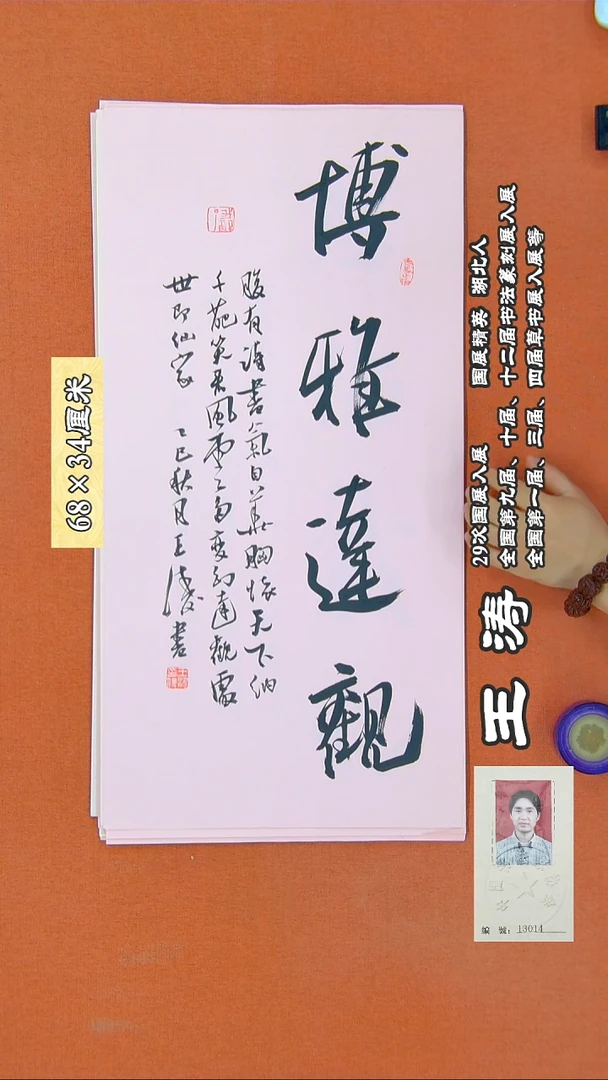 博雅達觀
腹有詩書氣自華胸懷天下納
千苑笑看風雲多變幻達觀處
世即仙家 乙巳秋月王濤書
68×34厘米
29次国展入展 国展精英 湖北人
全国第九届、十届、十二届书法篆刻展入展
全国第一届、三届、四届草书展入展等
王涛
13014